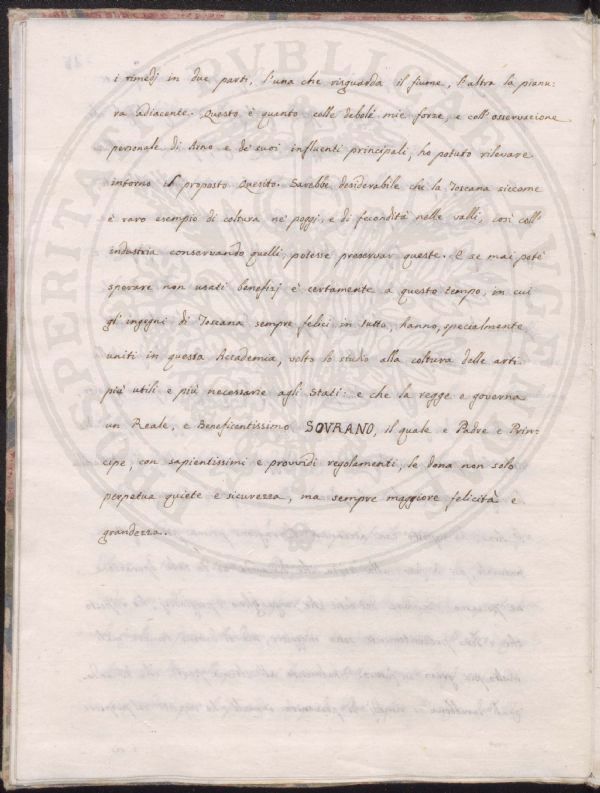 i rimedj in due parti, l'una che risguarda il fiume, l'altra la pianu-
ra adiacente. Questo è quanto colle deboli mie forze, e coll'osservazione
personale di Arno e de' suoi influenti principali, ho potuto rilevare
intorno il proposto Quesito. Sarebbe desiderabile che la Toscana siccome
è raro esempio di coltura ne' poggi, e di fecondità nelle valli, così coll'
industria conservando quelli, potesse preservar queste. E se mai poté
sperare non usati benefizj è certamente a questo tempo, in cui
gl'ingegni di Toscana sempre felici in tutto, hanno, specialmente
uniti in questa Accademia, volto lo studio alla coltura delle arti
più utili e più necessarie agli Stati: e che la regge e governa
un Reale, e Beneficentissimo SOVRANO, il quale e Padre e Prin-
cipe, con sapientissimi e provvidi regolamenti, le dona non solo
perpetua quiete e sicurezza, ma sempre maggiore felicità e
grandezza.
PROSPERITATI PUBLICAE AUGENDAE